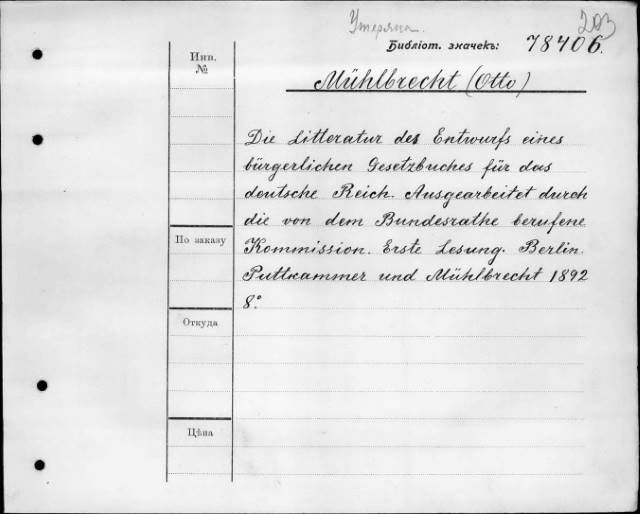 Утеряна.
203
Библіот. значекъ: 78406.
Инв.
№
Mühlbrecht (Otto)
Die Litteratur des Entwurfs eines
bürgerlichen Gesetzbuches für das
deutsche Reich. Ausgearbeitet durch
die von dem Bundesrathe berufene
Kommission. Erste Lesung. Berlin.
Puttkammer und Mühlbrecht 1892
8°.
По заказу
Откуда
Цѣна